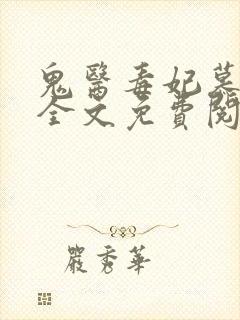 鬼醫毒妃慕
全文免費閱
嚴秀華